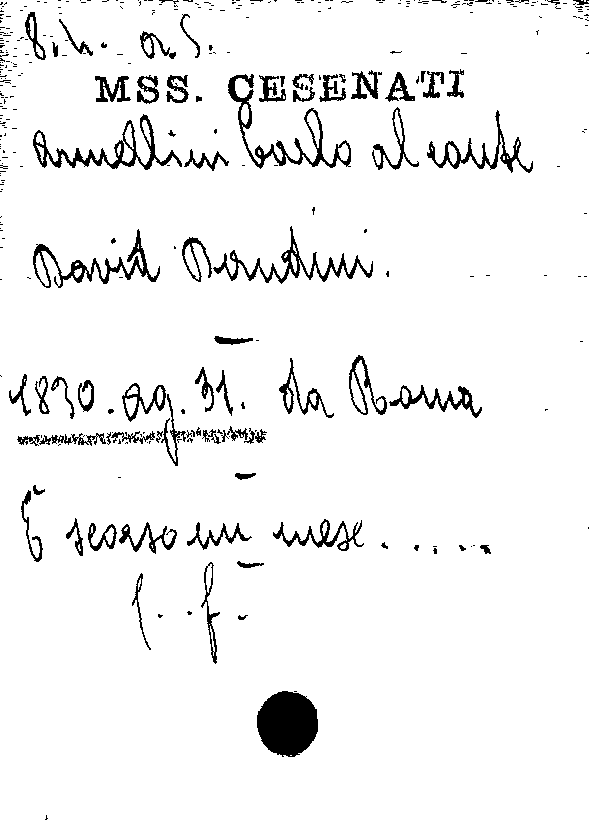 MSS. CESENATI
Armellini Carlo al conte
David Dandini.
1830. ag. 31. da Roma
È scorso un mese.....